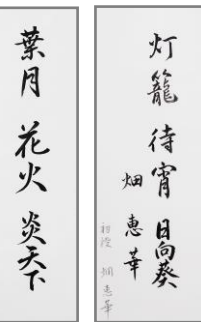 灯籠 待宵 日向葵
畑 恵華
初段 畑 恵華
葉月 花火 炎天下